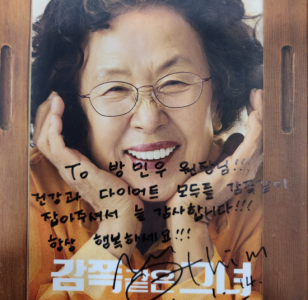 To 방민우 원장님!!!
건강과 다이어트 모두를
잡아주셔서 늘 감사합니다!!!
항상 행복하세요!!!
감쪽같은 그녀